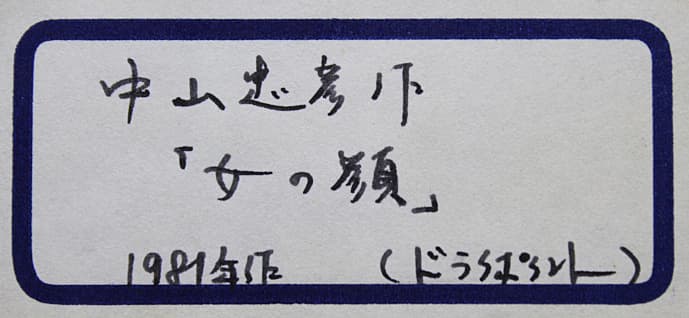 中山忠彦作
「女の顔」
1981年作 (ドライポイント)